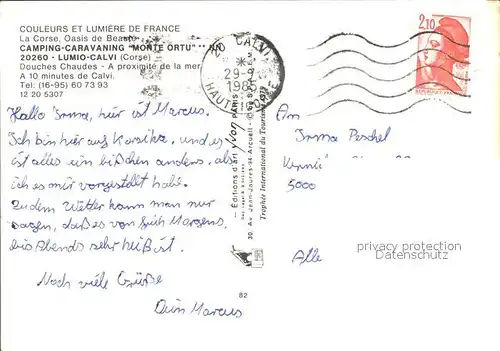 COULEURS ET LUMIÈRE DE FRANCE
La Corse, Oasis de Beauté
CAMPING-CARAVANING "MONTE ORTU" ** NN
20260 - LUMIO-CALVI (Corse)
Douches Chaudes - A proximité de la mer
A 10 minutes de Calvi.
Tel: (16-95) 60 73 93
12 20 5307
Hallo Irma, hier ist Marcus.
Ich bin hier auf Korsika, und es
ist alles ein bißchen anders, als
ich es mir vorgestellt habe.
Zu dem Wetter kann man nur
sagen, daß es von früh Morgens,
bis Abends sehr heiß ist.
Noch viele Grüße
Dein Marcus
82
20 CALVI
29-7
1985
HAUTE CORSE
Editions d'art yvon PARIS
30, Av. Jean-Jaurès-94-Arcueil
Trophée International du Tourisme 1973
2,10
An
Irma Peschel
5000
Alle
privacy protection
Datenschutz